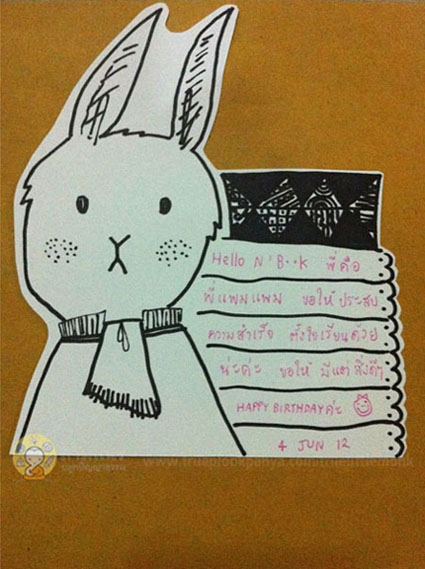 Hello N'B••k พี่คือ
พี่แพมแพม ขอให้ ประสบ
ความสำเร็จ ตั้งใจเรียนด้วย
น่ะค่ะ ขอให้ มีแต่ สิ่งดีๆ
HAPPY BIRTHDAY ค่ะ
4 JUN 12